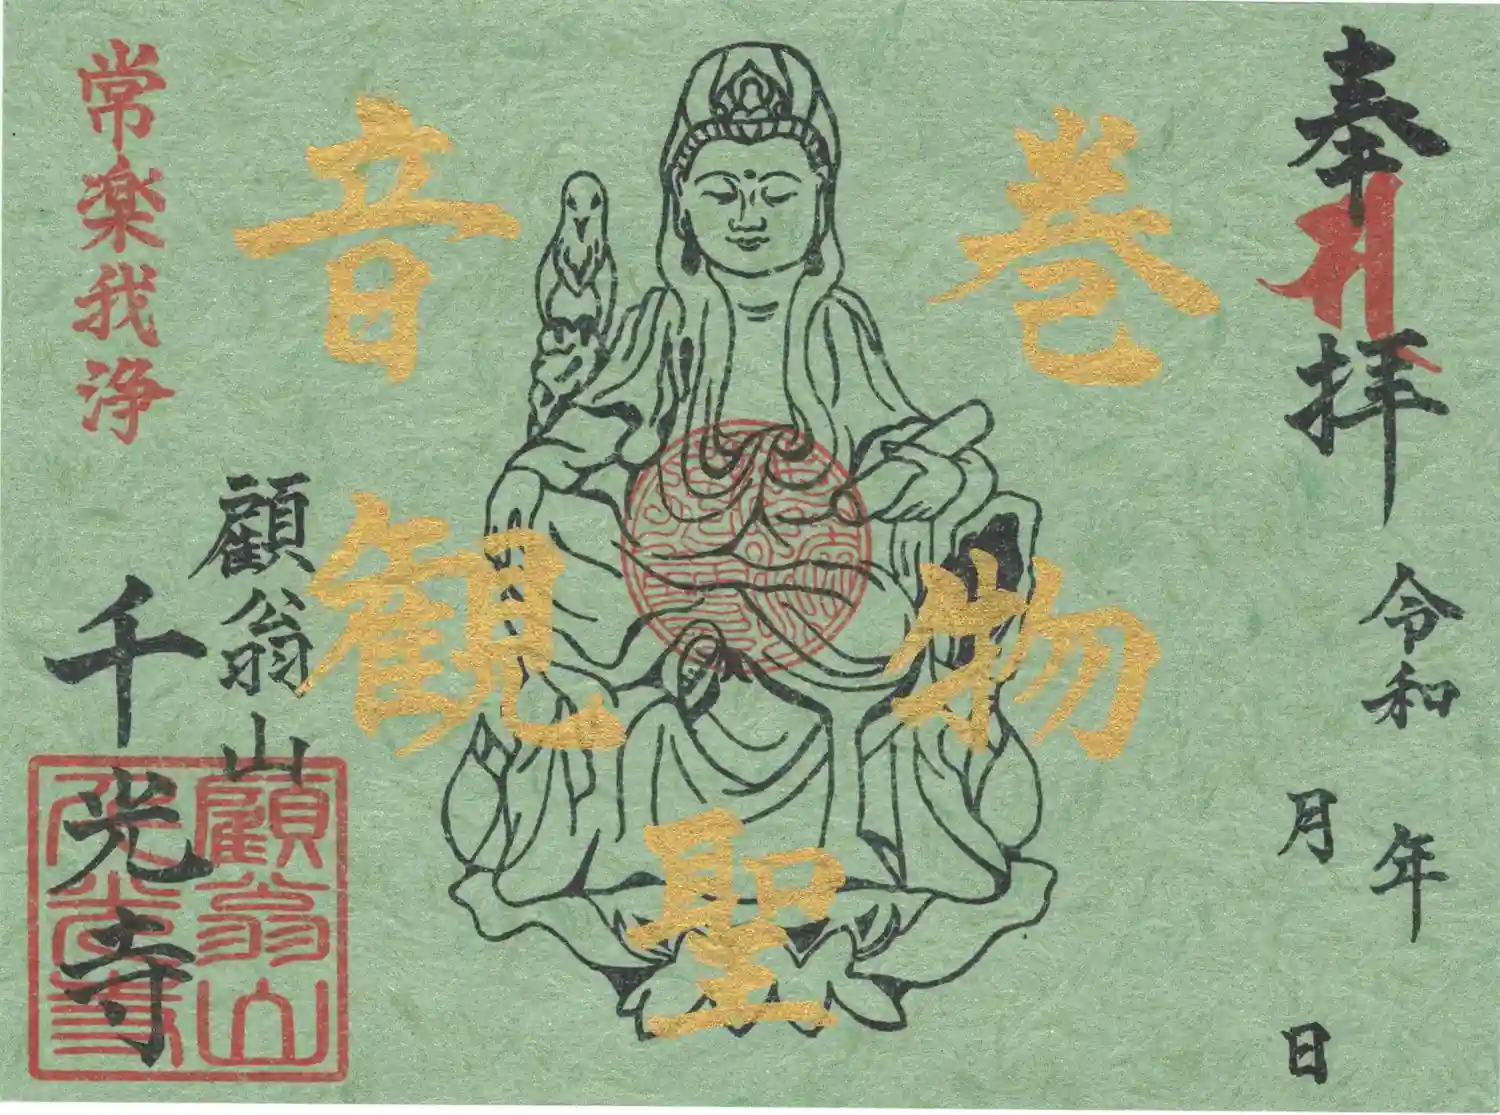 奉拝
令和　年
月　日
巻物
聖
観音
常楽我浄
顧翁山
千光寺
顧翁山